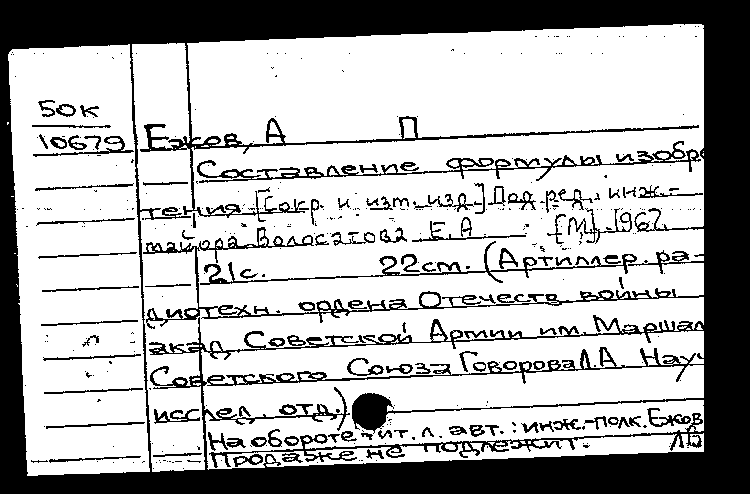 50к
10679 Ежов, А П
Составление формулы изобре
тения [Сокр и изм. изд.] Под ред. инж.-
майора Волосатова Е.А [М], 1967.
21с. 22см. (Артиллер. ра-
диотехн. ордена Отечеств войны
акад Советской Армии им. Маршал
Советского Союза Говорова Л.А. Науч
исслед. отд.)
На обороте тит. л. авт.: инж.-полк. Ежов
Продаже не подлежит. ЛБ